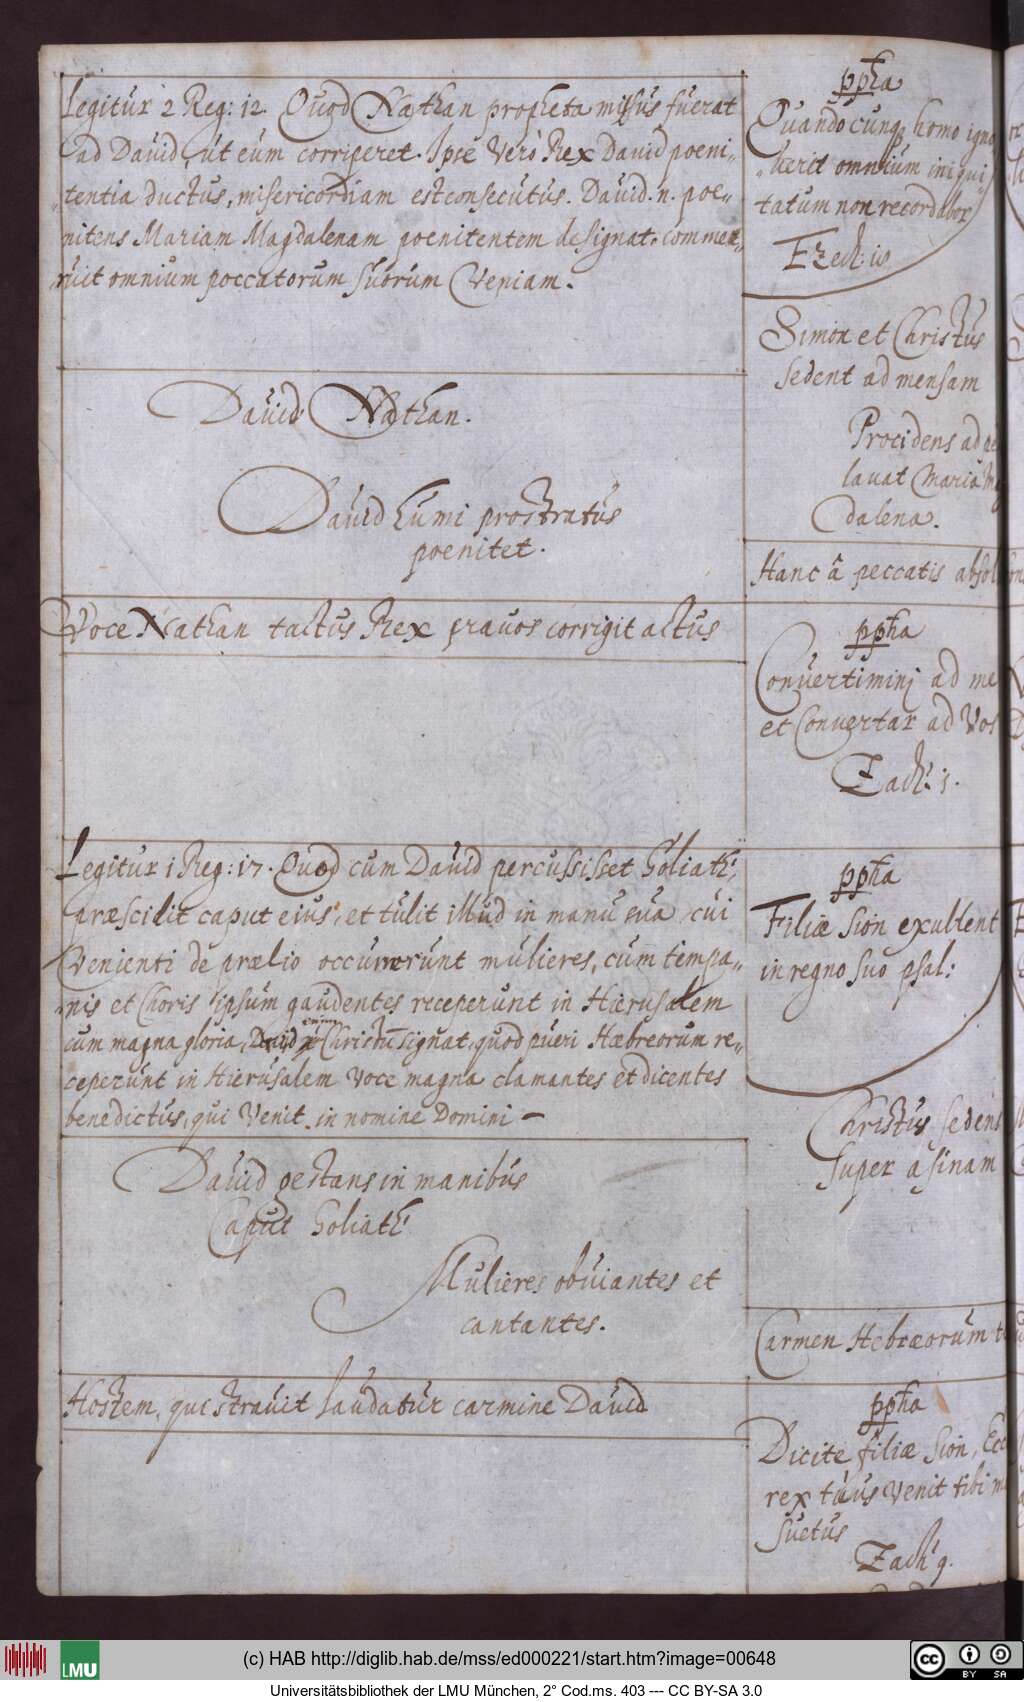 Legitur 2 Reg: 12. Quod Nathan propheta missus fuerat
ad Dauid, ut eum corrigeret. Ipse Vero Rex Dauid poeni„
„tentia ductus, misericordiam est consecutus. Dauid. n. poe„
nitens Mariam Magdalenam poenitentem designat, commer„
ruit omnium peccatorum suorum Veniam.
Dauid Nathan.
Dauid humi prostratus
poenitet.
Voce Nathan tactus Rex prauos corrigit actus
Legitur 1 Reg: 17. Quod cum Dauid percussisset Goliath,
præscidit caput eius, et tulit illud in manu sua cui
Venienti de prælio occurrerunt mulieres, cum tempa„
„nis et Choris ipsum gaudentes receperunt in Hierusalem
cum magna gloria, Dauid enim Christū signat, quod pueri Hæbreorum re„
ceperunt in Hierusalem Voce magna clamantes et dicentes
benedictus, qui Venit in nomine Domini —
Dauid gestans in manibus
Caput Goliath
Mulieres obuiantes et
cantantes.
Hostem, qui strauit laudatur carmine Dauid
ppha
Quandocunq homo igno
„uerit omnium iniqui„
tatum non recordabor
Ezech: is
Simon et Christus
sedent ad mensam
Procidens ad
lauat Maria
dalena.
Hanc â peccatis absol
ppha
Conuertiminj ad me
et Conuertar ad Vos
Zach: j.
ppha
Filiæ Sion exultent
in regno suo psal:
Christus sedens
super asinam
Carmen Hebræorum
ppha
Dicite filiæ Sion, Ecc
rex tuus Venit tibi m
suetus
Zach 9.
(c) HAB http://diglib.hab.de/mss/ed000221/start.htm?image=00648
LMU
cc BY SA
Universitätsbibliothek der LMU München, 2° Cod.ms. 403 --- CC BY-SA 3.0